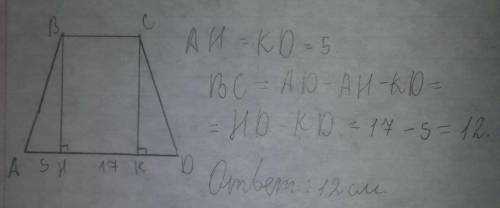 B C
AH = KD = 5
BC = AD - AH - KD =
= HD - KD = 17 - 5 = 12.
A 5 H 17 K D
Ответ: 12 см.